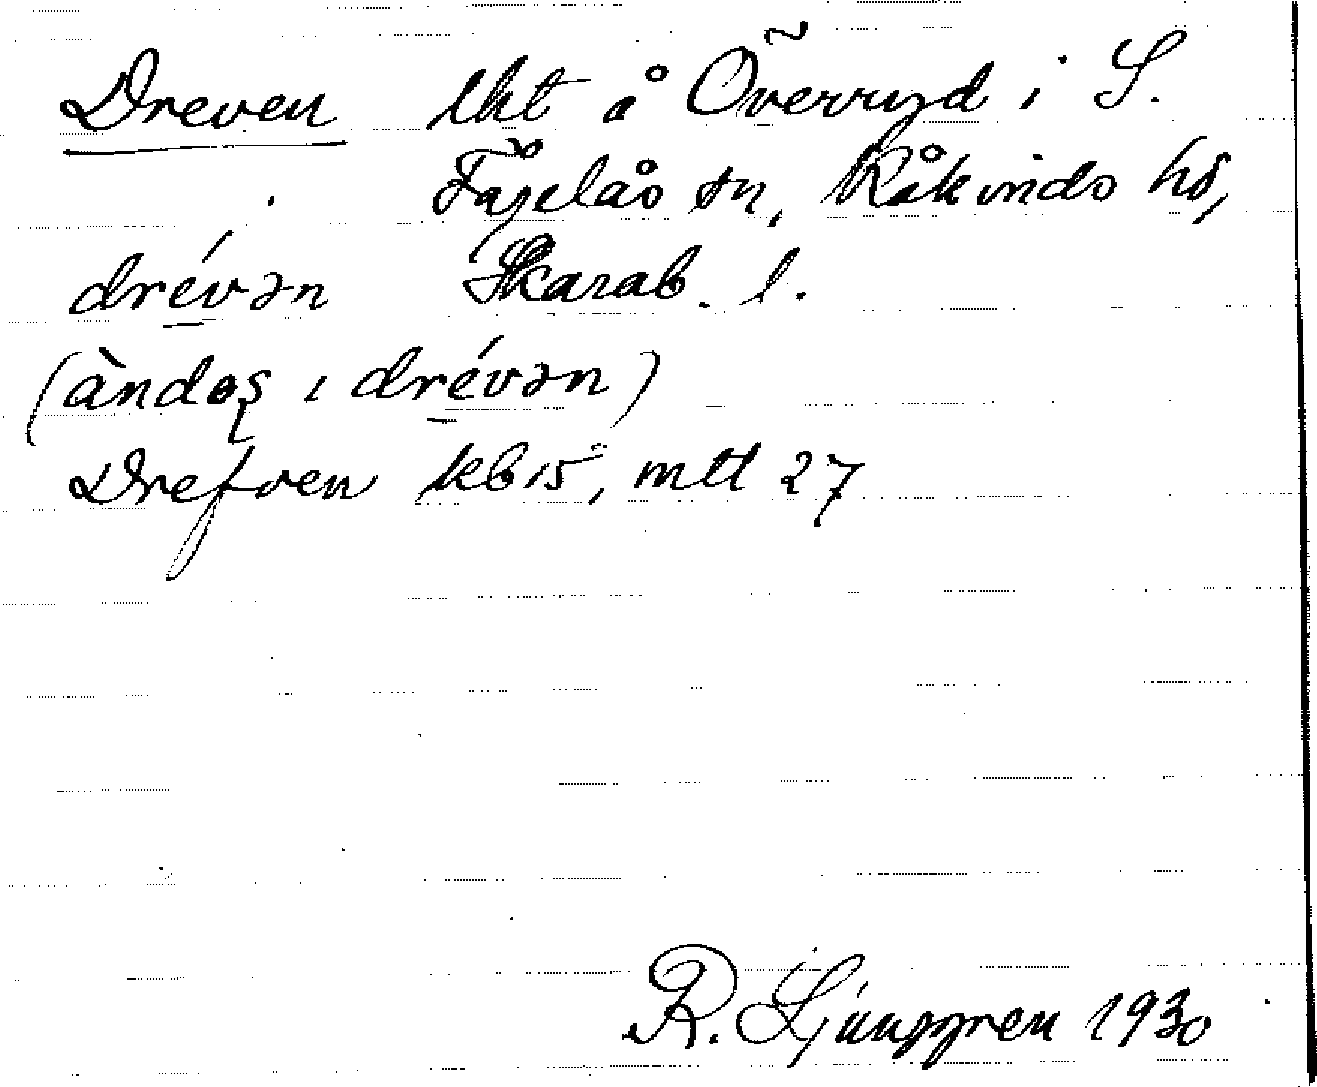 Dreven lht å Överryd i S.
Fågelås sn, Kåkinds hd,
drévən Skarab. l.
(àndəʂ ı drévən)
Drefven kb 15, mtl 27
R. Ljunggren 1930